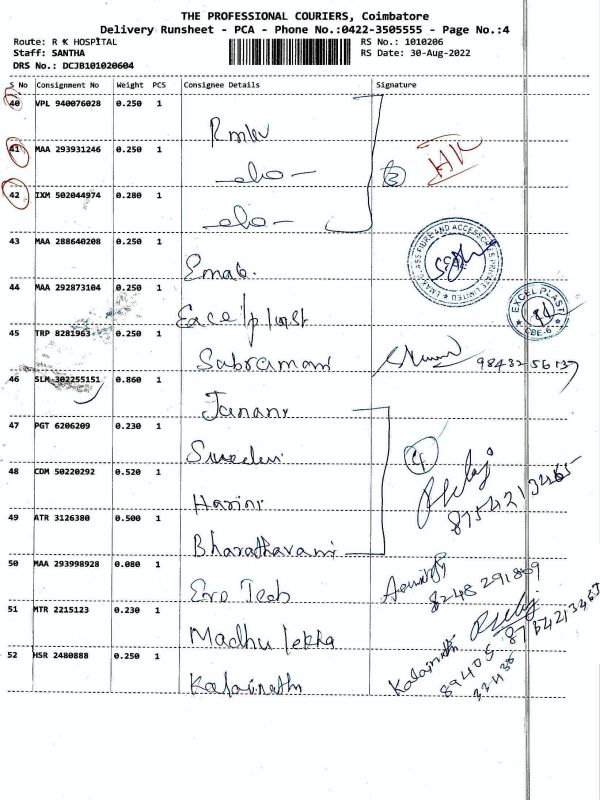 THE PROFESSIONAL COURIERS, Coimbatore
Delivery Runsheet - PCA - Phone No.:0422-3505555 - Page No.:4
Route: R K HOSPITAL
RS No.: 1010206
Staff: SANTHA
RS Date: 30-Aug-2022
DRS No.: DCJB101020604
S No Consignment No Weight PCS Consignee Details Signature
40 VPL 940076028 0.250 1
41 MAA 293931246 0.250 1
-do-
3
42 IXM 502044974 0.280 1
-do-
43 MAA 288640208 0.250 1
Emab.
44 MAA 292873104 0.250 1
EXCEL PLAST
CBE-6
45 TRP 8281963 0.250 1
Sabramani
98432 56137
46 SLM 302255151 0.860 1
Janani
47 PGT 6206209 0.230 1
4
48 CDM 50220292 0.520 1
Harini
8754213465
49 ATR 3126380 0.500 1
Bharatharani
50 MAA 293998928 0.080 1
Evo Tech
8248 291869
51 MTR 2215123 0.230 1
Madhulekha
8754213465
52 HSR 2480888 0.250 1
Kalainath
Kalainath
89405
33436